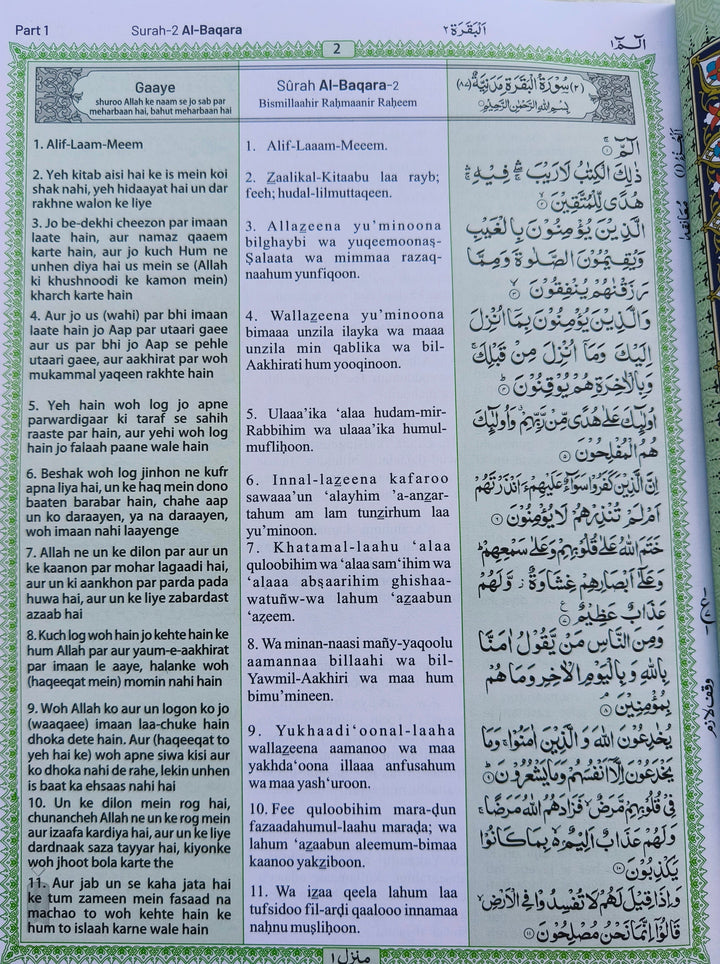 Part 1
Surah-2 Al-Baqara
اَلْبَقَرَة ٢
الٓمّٓ ١
2
Gaaye
shuroo Allah ke naam se jo sab par
meharbaan hai, bahut meharbaan hai
1. Alif-Laam-Meem
2. Yeh kitab aisi hai ke is mein koi
shak nahi, yeh hidaayat hai un dar
rakhne walon ke liye
3. Jo be-dekhi cheezon par imaan
laate hain, aur namaz qaaem
karte hain, aur jo kuch Hum ne
unhen diya hai us mein se (Allah
ki khushnoodi ke kamon mein)
kharch karte hain
4. Aur jo us (wahi) par bhi imaan
laate hain jo Aap par utaari gaee
aur us par bhi jo Aap se pehle
utaari gaee, aur aakhirat par woh
mukammal yaqeen rakhte hain
5. Yeh hain woh log jo apne
parwardigaar ki taraf se sahih
raaste par hain, aur yehi woh log
hain jo falaah paane wale hain
6. Beshak woh log jinhon ne kufr
apna liya hai, un ke haq mein dono
baaten barabar hain, chahe aap
un ko daraayen, ya na daraayen,
woh imaan nahi laayenge
7. Allah ne un ke dilon par aur un
ke kaanon par mohar lagaadi hai,
aur un ki aankhon par parda pada
huwa hai, aur un ke liye zabardast
azaab hai
8. Kuch log woh hain jo kehte hain ke
hum Allah par aur yaum-e-aakhirat
par imaan le aaye, halanke woh
(haqeeqat mein) momin nahi hain
9. Woh Allah ko aur un logon ko jo
(waaqaee) imaan laa-chuke hain
dhoka dete hain. Aur (haqeeqat to
yeh hai ke) woh apne siwa kisi aur
ko dhoka nahi de rahe, lekin unhen
is baat ka ehsaas nahi hai
10. Un ke dilon mein rog hai,
chunancheh Allah ne un ke rog mein
aur izaafa kardiya hai, aur un ke liye
dardnaak saza tayyar hai, kiyonke
woh jhoot bola karte the
11. Aur jab un se kaha jata hai
ke tum zameen mein fasaad na
machao to woh kehte hain ke
hum to islaah karne wale hain
Sûrah Al-Baqara-2
Bismillaahir Raḥmaanir Raḥeem
1. Alif-Laaam-Meeem.
2. Z̲aalikal-Kitaabu laa rayb;
feeh; hudal-lilmuttaqeen.
3. Allaz̲eena yu'minoona
bilghaybi wa yuqeemoonaṣ-
Ṣalaata wa mimmaa razaq-
naahum yunfiqoon.
4. Wallaz̲eena yu'minoona
bimaaa unzila ilayka wa maaa
unzila min qablika wa bil-
Aakhirati hum yooqinoon.
5. Ulaaa'ika ‘alaa hudam-mir-
Rabbihim wa ulaaa'ika humul-
mufliḥoon.
6. Innal-laz̲eena kafaroo
sawaaa'un ‘alayhim 'a-anz̲ar-
tahum am lam tunz̲irhum laa
yu'minoon.
7. Khatamal-laahu ‘alaa
quloobihim wa ‘alaa sam‘ihim wa
‘alaaa abṣaarihim ghishaa-
watuñw-wa lahum ‘az̲aabun
‘aẓeem.
8. Wa minan-naasi mañy-yaqoolu
aamannaa billaahi wa bil-
Yawmil-Aakhiri wa maa hum
bimu'mineen.
9. Yukhaadi‘oonal-laaha
wallaz̲eena aamanoo wa maa
yakhda‘oona illaaa anfusahum
wa maa yash‘uroon.
10. Fee quloobihim mara-ḍun
fazaadahumul-laahu maraḍa; wa
lahum ‘az̲aabun aleemum-bimaa
kaanoo yakz̲iboon.
11. Wa iz̲aa qeela lahum laa
tufsidoo fil-arḍi qaalooo innamaa
naḥnu muṣliḥoon.
(٢) سُوْرَةُ الْبَقَرَةِ مَدَنِيَّةٌ (٨٧)
بِسْمِ اللهِ الرَّحْمٰنِ الرَّحِيْمِ
الٓمّٓ ۝١
ذٰلِكَ الْكِتٰبُ لَا رَيْبَ ۛ فِيْهِ ۛ
هُدًى لِّلْمُتَّقِيْنَ ۝٢
الَّذِيْنَ يُؤْمِنُوْنَ بِالْغَيْبِ
وَيُقِيْمُوْنَ الصَّلٰوةَ وَمِمَّا
رَزَقْنٰهُمْ يُنْفِقُوْنَ ۝٣
وَالَّذِيْنَ يُؤْمِنُوْنَ بِمَآ اُنْزِلَ
اِلَيْكَ وَمَآ اُنْزِلَ مِنْ قَبْلِكَ ۚ
وَبِالْاٰخِرَةِ هُمْ يُوْقِنُوْنَ ۝٤
اُولٰٓئِكَ عَلٰى هُدًى مِّنْ رَّبِّهِمْ ۗ وَاُولٰٓئِكَ
هُمُ الْمُفْلِحُوْنَ ۝٥
اِنَّ الَّذِيْنَ كَفَرُوْا سَوَآءٌ عَلَيْهِمْ ءَاَنْذَرْتَهُمْ
اَمْ لَمْ تُنْذِرْهُمْ لَا يُؤْمِنُوْنَ ۝٦
خَتَمَ اللهُ عَلٰى قُلُوْبِهِمْ وَعَلٰى سَمْعِهِمْ ۗ
وَعَلٰٓى اَبْصَارِهِمْ غِشَاوَةٌ ۫ وَّلَهُمْ
عَذَابٌ عَظِيْمٌ ۝٧
وَمِنَ النَّاسِ مَنْ يَّقُوْلُ اٰمَنَّا
بِاللهِ وَبِالْيَوْمِ الْاٰخِرِ وَمَا هُمْ
بِمُؤْمِنِيْنَ ۝٨
يُخٰدِعُوْنَ اللهَ وَالَّذِيْنَ اٰمَنُوْا ۚ وَمَا
يَخْدَعُوْنَ اِلَّآ اَنْفُسَهُمْ وَمَا يَشْعُرُوْنَ ۝٩
فِيْ قُلُوْبِهِمْ مَّرَضٌ ۙ فَزَادَهُمُ اللهُ مَرَضًا ۚ
وَلَهُمْ عَذَابٌ اَلِيْمٌ ۢ بِمَا كَانُوْا
يَكْذِبُوْنَ ۝١٠
وَاِذَا قِيْلَ لَهُمْ لَا تُفْسِدُوْا فِي الْاَرْضِ ۙ
قَالُوْٓا اِنَّمَا نَحْنُ مُصْلِحُوْنَ ۝١١
وقف لازم
منزل ١